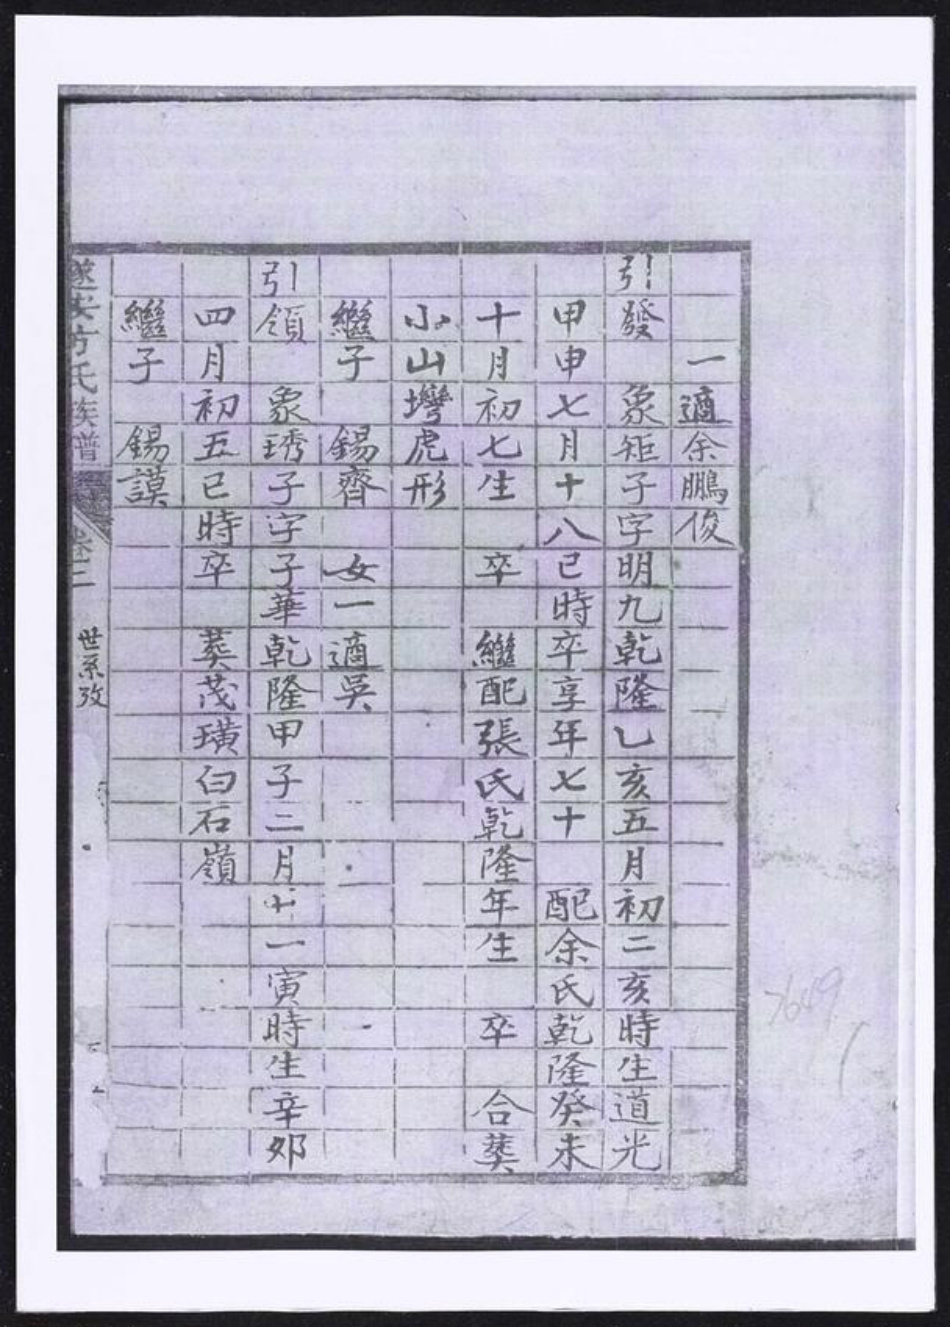 一適余鵬俊
引發 象矩子字明九乾隆乙亥五月初二亥時生道光
甲申七月十八巳時卒享年七十 配余氏乾隆癸未
十月初七生 卒 繼配張氏乾隆年生 卒 合葬
小山灣虎形
繼子 錫齊 女一適吳
引領 象琇子字子華乾隆甲子二月十一寅時生辛卯
四月初五巳時卒 葬茂璜白石嶺
繼子 錫謨
遂安方氏族譜 卷二 世系攷